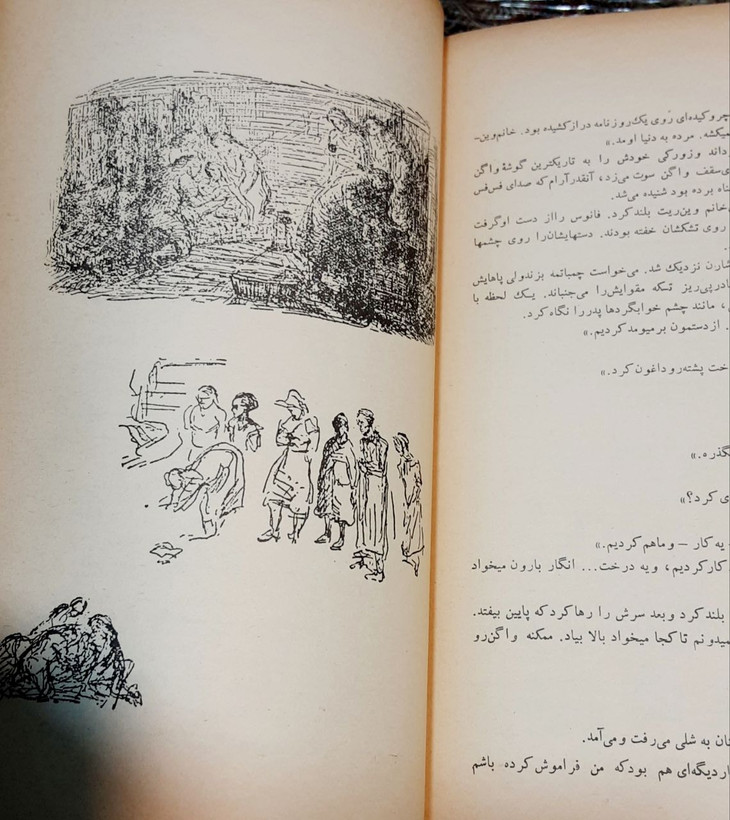 چروکیده‌ای روی یک روزنامه دراز کشیده بود. خانم وین‌ـ
میکشه. مرده به دنیا اومد.»
داند وزورکی خودش را به تاریکترین گوشهٔ واگن
سقف واگن سوت می‌زد، آنقدر آرام که صدای فس‌فس
برده بود شنیده می‌شد.
خانم وین‌ریت بلند کرد. فانوس رااز دست او گرفت
روی تشکشان خفته بودند. دستهایشان را روی چشمها
شارن نزدیک شد. می‌خواست چمباتمه بزند ولی پاهایش
پی‌ریز تسکه مقوایش‌را می‌جنباند. یک لحظه با
، مانند چشم خوابگردها پدر را نگاه کرد.
. از دستمون برمیومد کردیم.»
پشته‌رو داغون کرد.»
کرد؟»
یه کار – و ماهم کردیم.»
کار کردیم، و یه درخت... انگار بارون میخواد
بلند کرد و بعد سرش را رها کرد که پایین بیفتد.
تا کجا میخواد بالا بیاد. ممکنه واگن‌رو
به شلی می‌رفت و می‌آمد.
دیگه‌ای هم بود که من فراموش کرده باشم